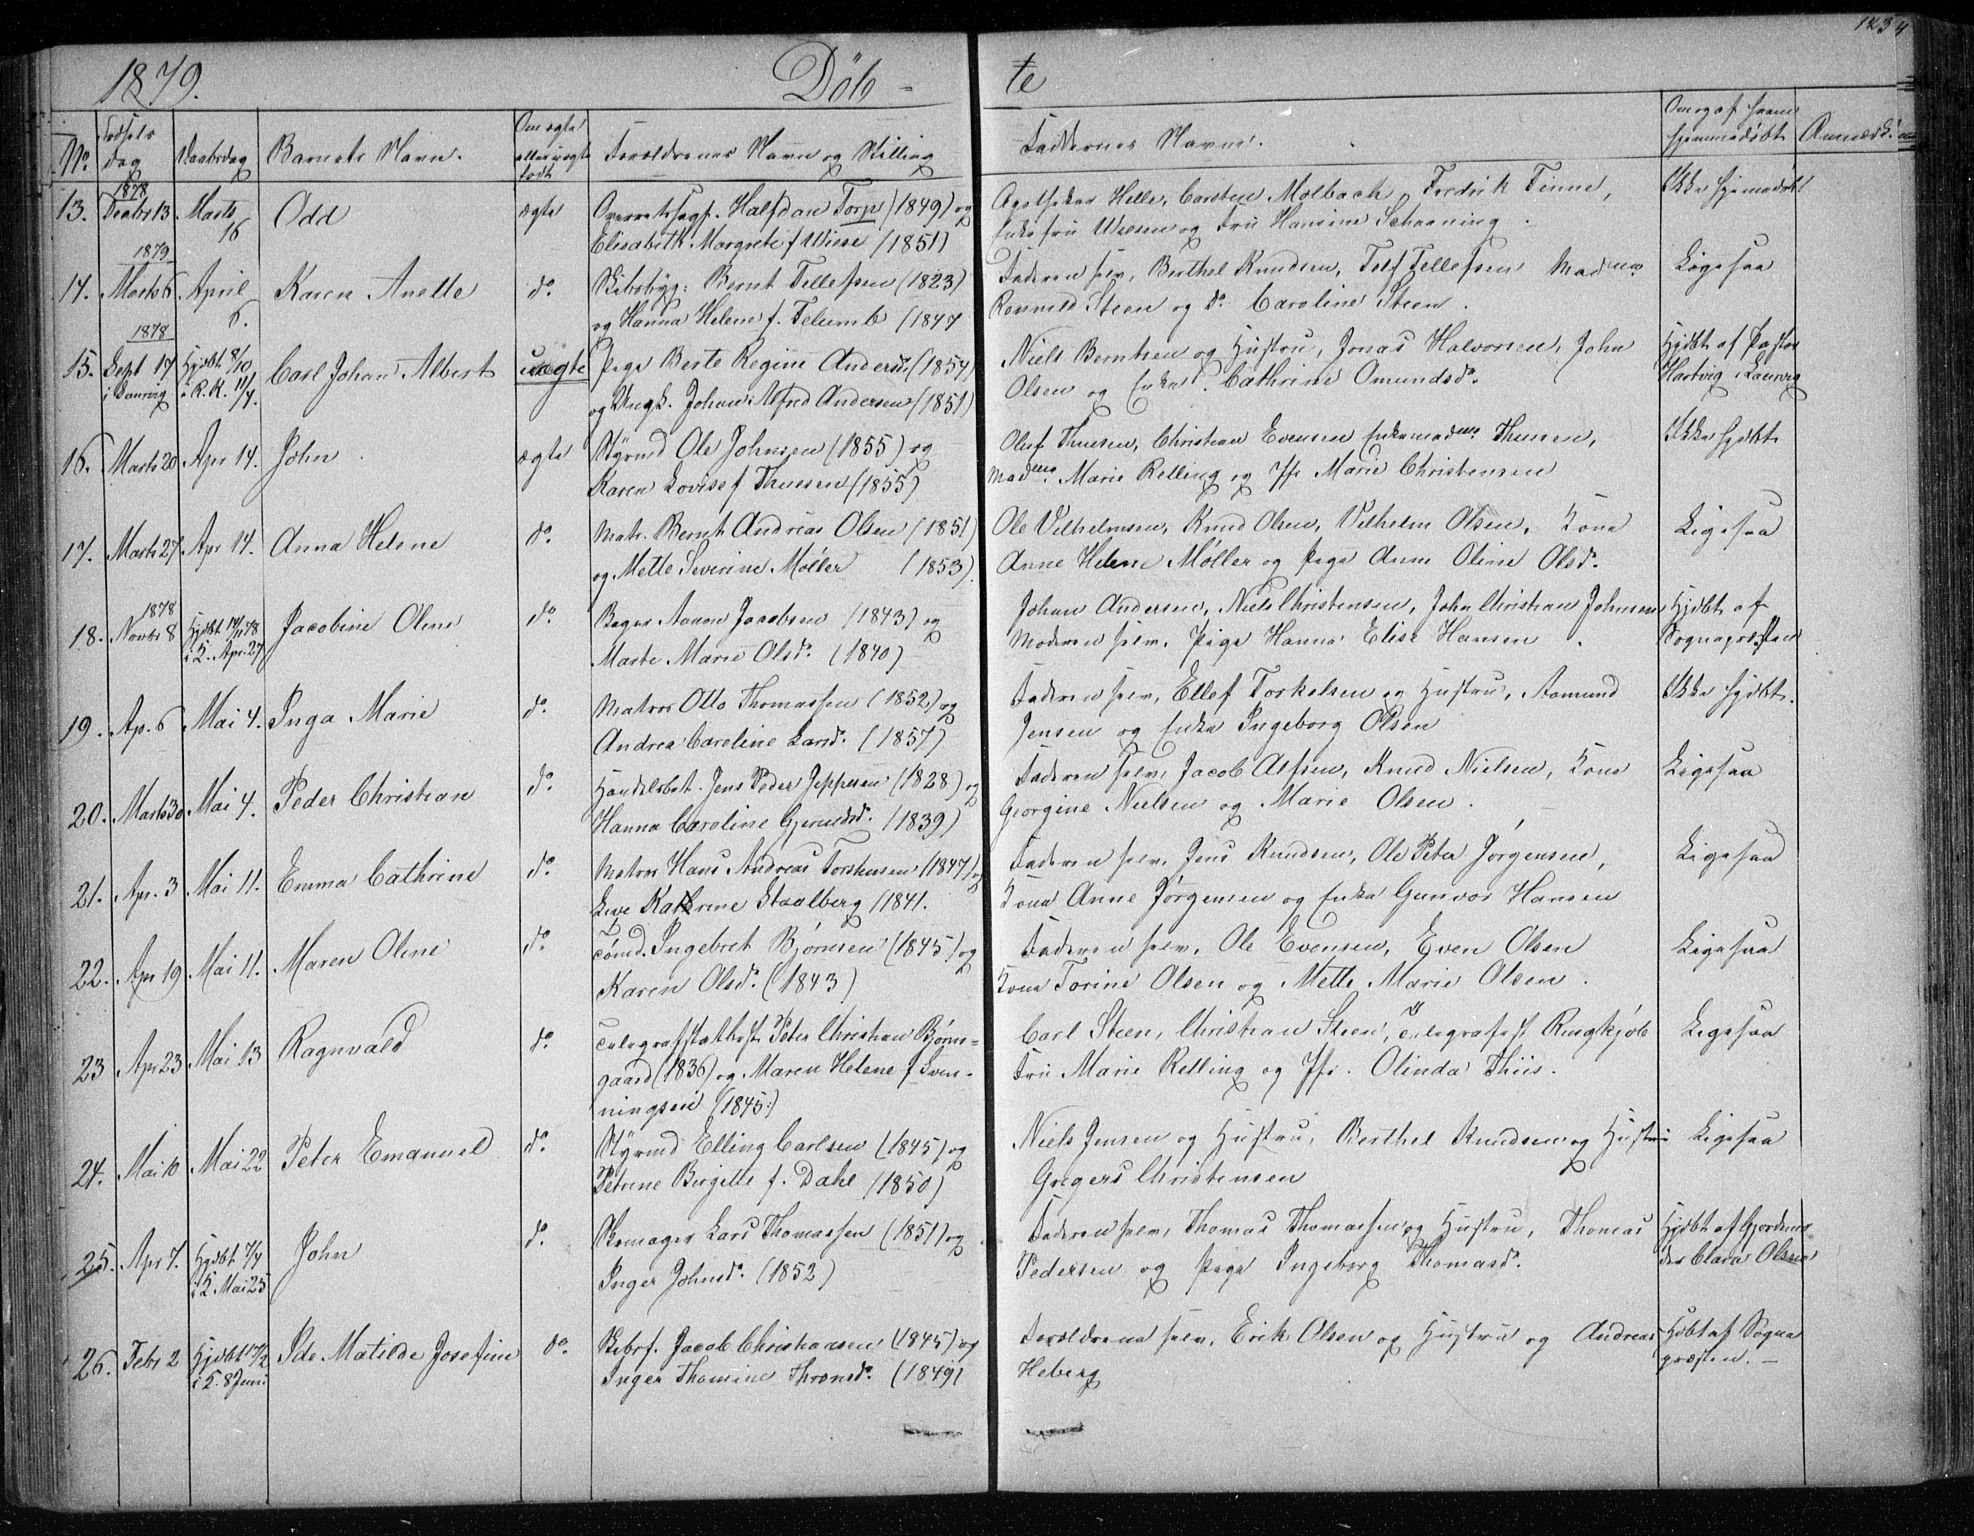 1234
1879. Döb - te
No. Fødsels dag Daabsdag Barnets Navn. Om ægte eller uægte født Forældrenes Navn og Stilling Faddernes Navne. Om og af hvem hjemmedøbt Anmærk
1878
13. Decbr 13 Marts 16 Odd ægte Overretssagf. Halfdan Torp (1849) og Apotheker Helle, Carsten Molbach, Fredrik Finne, Ikke hjemmedøbt
Elisabeth Margrete f Wiese (1851) Enkefru Wiesen og Fru Hansine Schaaning.
1879
14. Marts 6 April 6. Karen Anette do. Skibsbyg: Bernt Tellefsen (1823) Faderen selv, Berthel Knudsen, Telf Tellefsen Madme. Ligesaa
og Hanna Helene f. Felumb (1847 Ronnild Steen og do. Caroline Steen.
1878
15. Sept 17 i Laurvig Hjdbt. 8/10 i R.K. 11/4. Carl Johan Albert uægte Pige Berte Regine Andersd. (1854) Niels Berntsen og Hustru, Jonas Halvorsen, John Hjdbt af Pastor
og Ungk. Johan Alfred Andersen (1851) Olsen og Enke Cathrine Omundsdr. Hartvig i Laurvig
16. Marts 20 Apr 14. John. ægte Styrmd Ole Johnsen (1855) og Oluf Thuesen, Christian Evensen Enkemadme. Thuesen, Ikke hjdbt
Karen Lovise f Thuesen (1855) Madme. Marie Relling og Jfr Marie Christensen
17. Marts 27 Apr 14. Anna Helene do. Matr. Bernt Andreas Olsen (1851) Ole Vilhelmsen, Knud Olsen, Vilhelm Olsen, Kone Ligesaa
og Mette Severine Møller (1853). Anne Helene Møller og Pige Anne Oline Olsdr.
1878
18. Novbr 8 Hjdbt 14/11 78 i K. Apr. 27 Jacobine Oline do. Bager Aanon Jacobsen (1843) og Johan Andersen, Niels Christensen, John Christian Johnsen, Hjdbt. af
Marte Marie Olsdr. (1840) Moderen selv, Pige Hanna Elise Hansen. Sognepresten
19. Apr. 6 Mai 4. Inga Marie do. Matros Otto Thomassen (1852) og Faderen selv, Ellef Torkelsen og Hustru, Aamund Ikke hjdbt.
Andrea Caroline Larsdr. (1857) Jensen og Enke Ingeborg Olsen
20. Marts 30 Mai 4. Peder Christian do. Handelsbet. Jens Peder Jeppesen (1828) og Faderen selv, Jacob Alfsen, Knud Nielsen, Kone Ligesaa
Hanna Caroline Gjerulsdr. (1839) Georgine Nielsen og Marie Olsen.
21. Apr. 3 Mai 11. Emma Cathrine do. Matros Hans Andreas Torstensen (1847) og Faderen selv, Jens Knudsen, Ole Peter Jørgensen, Ligesaa
Live Katrine Staalberg (1841. Kone Anne Jørgensen og Enke Gunvor Hansen
22. Apr 19 Mai 11. Maren Oline do. Tømd. Ingebret Bjørnsen (1845) og Faderen selv, Ole Evensen, Even Olsen Ligesaa
Karen Olsdr. (1843) Kone Torine Olsen og Mette Marie Olsen.
23 Apr 23 Mai 13 Ragnvald do. Telegrafstatbest. Peter Christian Bjørns- Carl Steen, Christian Steen, Telegrafest Ringkjøb Ligesaa
gaard (1836) og Maren Helene f Sven- Fru Marie Relling og Jfr. Olinda Thiis.
ningsen (1845.)
24. Mai 10 Mai 22 Peter Emanuel do. Styrmd Elling Carlsen (1845) og Niels Jensen og Hustru, Berthel Knudsen og Hustru Ligesaa
Petrine Birgitte f. Dahl (1850) Gregers Christensen
25. Apr 7. Hjdbt 7/4 i K. Mai 25 John do. Skomager Lars Thomassen (1851) og Faderen selv, Thomas Thomassen og Hustru, Thomas Hjdbt af Gjordemo
Inger Johnsdr. (1852) Pedersen og Pige Ingeborg Thomasdr. der Clara Olsen
26. Febr 2 Hjdbt 17/2 i K. 8 Juni Ide Matilde Josefine do. Skibsf. Jacob Christiansen (1845) og Forældrene selv, Erik Olsen og Hustru og Andreas Hjdbt af Sogne
Inger Thomine Thronsdr. (1849) Heberg præsten. -